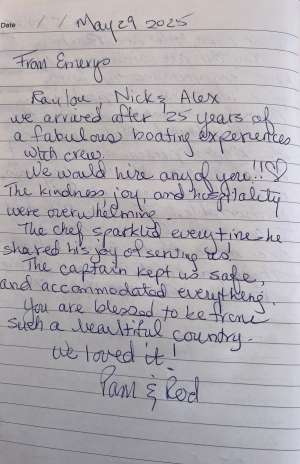 Date / / May 29 2025
From Emerys
Raylou, Nick & Alex
we arrived after 25 years of
a fabulous boating experiences
with crew.
We would hire any of you!!♡
The kindness joy, and hospitality
were overwhelming.
The chef sparkled everytime he
shared his joy of serving us.
The captain kept us safe,
and accommodated everything.
You are blessed to be from
such a beautiful country.
We loved it!
Pam & Rod